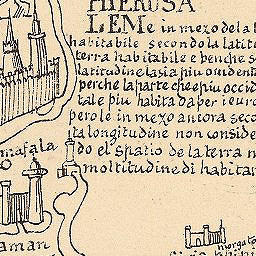 HIERUSA
LEM e in mezo de la t
habitabile secondo la latitu
terra habitabile e benche s
latitudine la sia piu ovidenta
perche la parte che e piu occid
tale piu habitada per i euro
pe ro le in mezo ancora seco
la longitudine non conside
do el spatio de la terra m
moltitudine di habitan
mafala
aman
niorgato